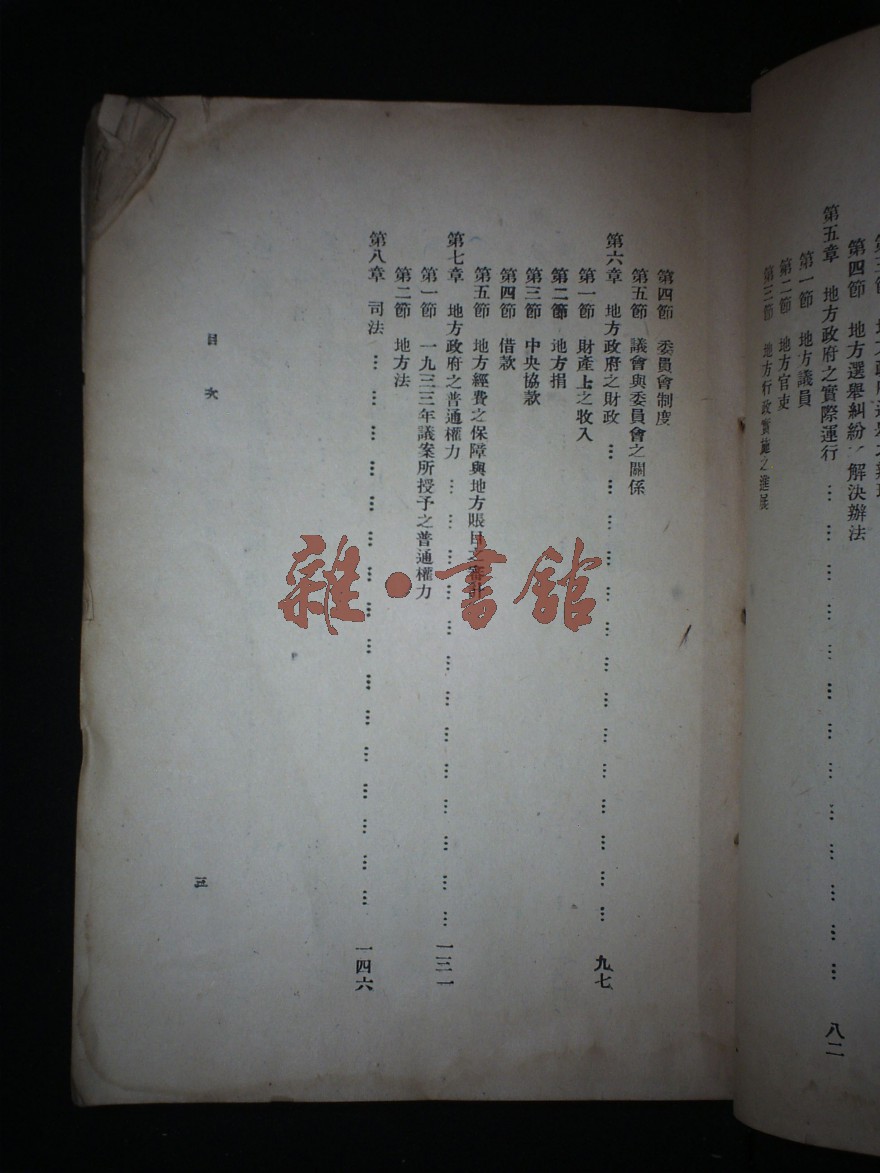 第四節 地方選舉糾紛之解決辦法
第五章 地方政府之實際運行 … … … … … … … … … … … 八二
第一節 地方議員
第二節 地方官吏
第三節 地方行政實施之進展
第四節 委員會制度
第五節 議會與委員會之關係
第六章 地方政府之財政 … … … … … … … … … … … … 九七
第一節 財產上之收入
第二節 地方捐
第三節 中央協款
第四節 借款
第五節 地方經費之保障與地方賬目之審計
第七章 地方政府之普通權力 … … … … … … … … … … 一三一
第一節 一九三三年議案所授予之普通權力
第二節 地方法
第八章 司法 … … … … … … … … … … … … … … 一四六
目次
三
雜·書館